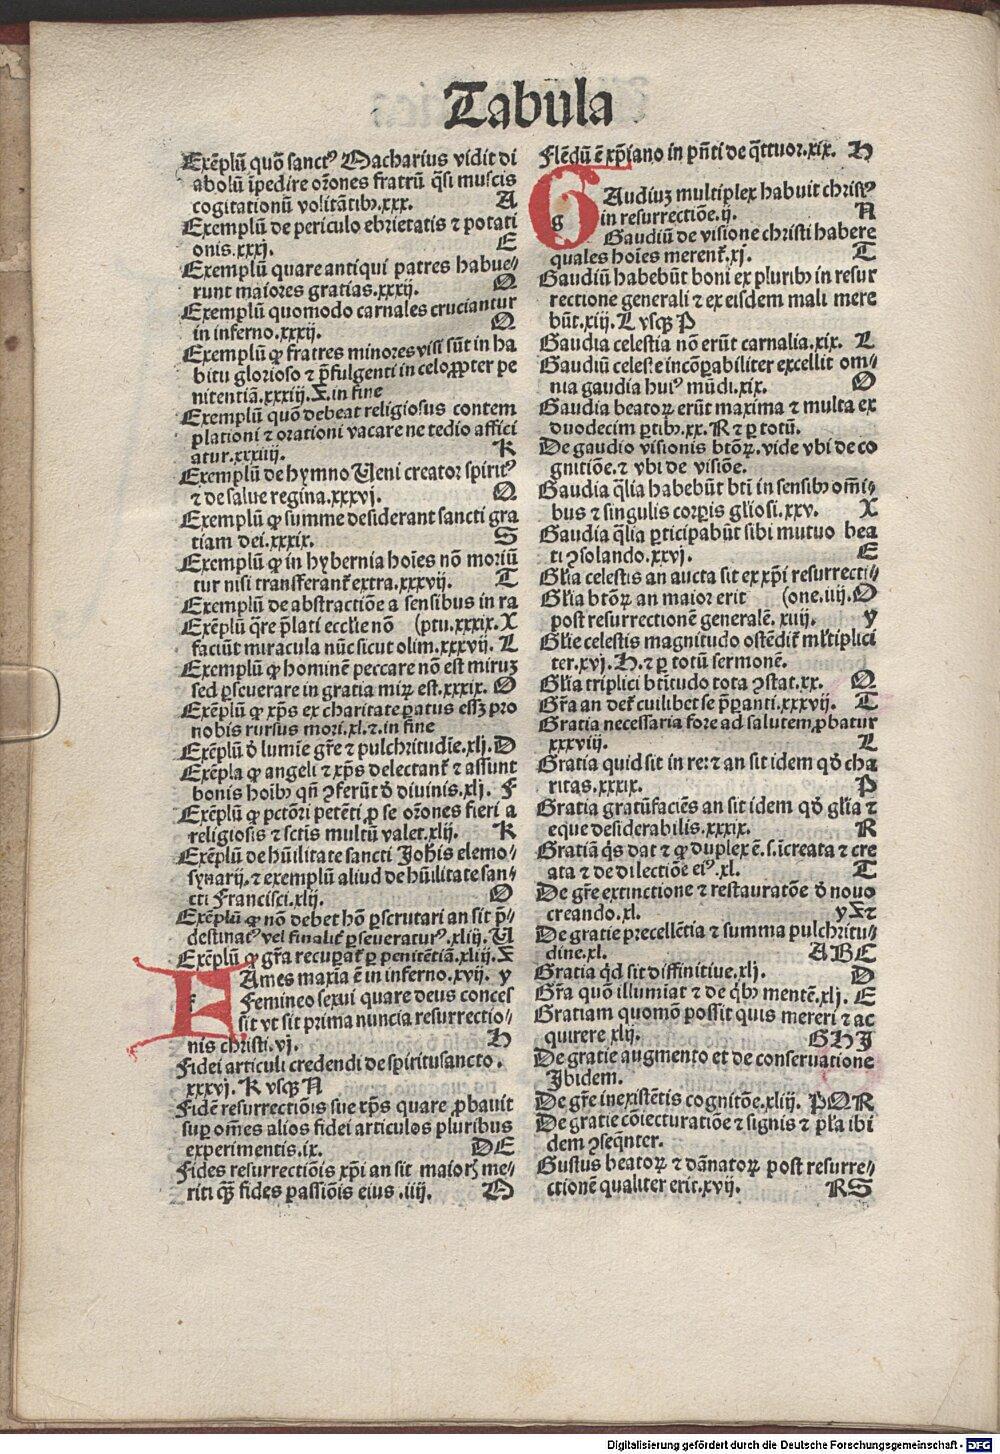 Tabula
Exẽplũ quõ sanctꝰ Macharius vidit di
abolũ ĩpedire orõnes fratrũ q̃si muscis
cogitationũ volitãtibꝫ.xxx. A
Exemplũ de periculo ebrietatis ⁊ potati
onis.xxxj. E
Exemplũ quare antiqui patres habue⸗
runt maiores gratias.xxxij. O
Exemplũ quomodo carnales cruciantur
in inferno.xxxij. O
Exemplũ ꝙ fratres minores visi sũt in ha
bitu glorioso ⁊ p̃fulgenti in celo ꝓpter pe
nitentiã.xxxiij.X.in fine
Exemplũ quõ debeat religiosus contem
plationi ⁊ orationi vacare ne tedio affici
atur.xxxiiij. K
Exemplũ de hymno Ueni creator spiritꝰ
⁊ de salue regina.xxxvj. O
Exemplũ ꝙ summe desiderant sancti gra
tiam dei.xxxix. S
Exemplũ ꝙ in hybernia hoĩes nõ moriũ
tur nisi transferant̃ extra.xxxvij. T
Exemplũ de abstractiõe a sensibus in ra
Exemplũ q̃re p̃lati eccl̃ie nõ (ptu.xxxix.X
faciũt miracula nũc sicut olim.xxxvij. L
Exemplũ ꝙ hominẽ peccare nõ est miruꝫ
sed ꝑseuerare in gratia miꝝ est.xxxix. O
Exẽplũ ꝙ xp̃s ex charitate ꝑatus essꝫ pro
nobis rursus mori.xl.⁊.in fine
Exẽplũ ð lumĩe gr̃e ⁊ pulchritudĩe.xlj.D
Exẽpla ꝙ angeli ⁊ xp̃s delectant̃ ⁊ assunt
bonis hoĩbꝰ qñ ꝯferũt ð diuinis.xlj. F
Exẽplũ ꝙ pctõri petẽti ꝓ se orõnes fieri a
religiosis ⁊ sctis multũ valet.xlij. K
Exẽplũ de hũilitate sancti Joh̃is elemo⸗
synarij.⁊ exemplũ aliud de hũilitate san⸗
cti Francisci.xlij. O
Exẽplũ ꝙ nõ debet hõ ꝑscrutari an sit p̃⸗
destinatꝰ vel finalit̃ ꝑseueraturꝰ.xliij.U
Exẽplũ ꝙ gr̃a recuꝑat̃ ꝑ penitẽtiã.xliij.X
FAmes maxĩa ẽ in inferno.xvij. y
f Femineo sexui quare deus conces
sit vt sit prima nuncia resurrectio⸗
nis christi.vj. H
Fidei articuli credendi de spiritusancto.
xxxvj.K vsqꝫ N
Fidẽ resurrectiõis sue xp̃s quare ꝓbauit
suꝑ om̃es alios fidei articulos pluribus
experimentis.ix. DE
Fides resurrectiõis xp̃i an sit maioris̃ me⸗
riti q̃ꝫ fides passiõis eius .iiij. O
Flẽdũ ẽ xp̃iano in pñti de q̃ttuor.xix. H
GAudiuꝫ multiplex habuit christꝰ
g in resurrectiõe.ij. N
Gaudiũ de visione christi habere
quales hoĩes merent̃.xj. T
Gaudiũ habebũt boni ex pluribꝰ in resur
rectione generali ⁊ ex eisdem mali mere
bũt.xiij.L vsqꝫ P
Gaudia celestia nõ erũt carnalia.xix. L
Gaudiũ celeste incõꝑabiliter excellit om⸗
nia gaudia huiꝰ mũdi.xix. O
Gaudia beatoꝝ erũt maxima ⁊ multa ex
duodecim ꝑtibꝰ.xx.R ⁊ ꝑ totũ.
De gaudio visionis btõꝝ.vide vbi de co
gnitiõe.⁊ vbi de visiõe.
Gaudia q̃lia habebũt bti in sensibꝰ om̃i⸗
bus ⁊ singulis corꝑis gl̃iosi.xxv. X
Gaudia q̃lia ꝑticipabũt sibi mutuo bea
ti ꝯsolando.xxvj. E
Gl̃ia celestis an aucta sit ex xp̃i resurrecti⸗
Gl̃ia btõꝝ an maior erit (one.iiij.O
post resurrectionẽ generalẽ.xiiij. y
Gl̃ie celestis magnitudo ostẽdit̃ ml̃tiplici
ter.xvj.H.⁊ ꝑ totũ sermonẽ.
Gl̃ia triplici bt̃itudo tota ꝯstat.xx. O
Gr̃a an det̃ cuilibet se p̃ꝑanti.xxxvij. T
Gratia necessaria fore ad salutem ꝓbatur
xxxviij. L
Gratia quid sit in re:⁊ an sit idem qð cha
ritas.xxxix. P
Gratia gratũfaciẽs an sit idem qð gl̃ia ⁊
eque desiderabilis.xxxix. R
Gratiã q̃s dat ⁊ ꝙ duplex ẽ.s.ĩcreata ⁊ cre
ata ⁊ de dilectiõe eiꝰ.xl. T
De gr̃e extinctione ⁊ restauratõe ð nouo
creando.xl. yX⁊
De gratie precellẽtia ⁊ summa pulchritu⸗
dine.xl. ABC
Gratia q̃d sit diffinitiue.xlj. D
Gr̃a quõ illumiat ⁊ de q̃bꝰ mentẽ.xlj. E
Gratiam quomõ possit quis mereri ⁊ ac
quirere xlij. GHJ
De gratie augmento et de conseruatione
Jbidem.
De gr̃e inexistẽtis cognitõe.xliij. PQR
De gratie cõiecturatiõe ⁊ signis ⁊ pl̃a ibi
dem ꝯseq̃nter.
Gustus beatoꝝ ⁊ dãnatoꝝ post resurre⸗
ctionẽ qualiter erit.xvij. RS
Digitalisierung gefördert durch die Deutsche Forschungsgemeinschaft - DFG